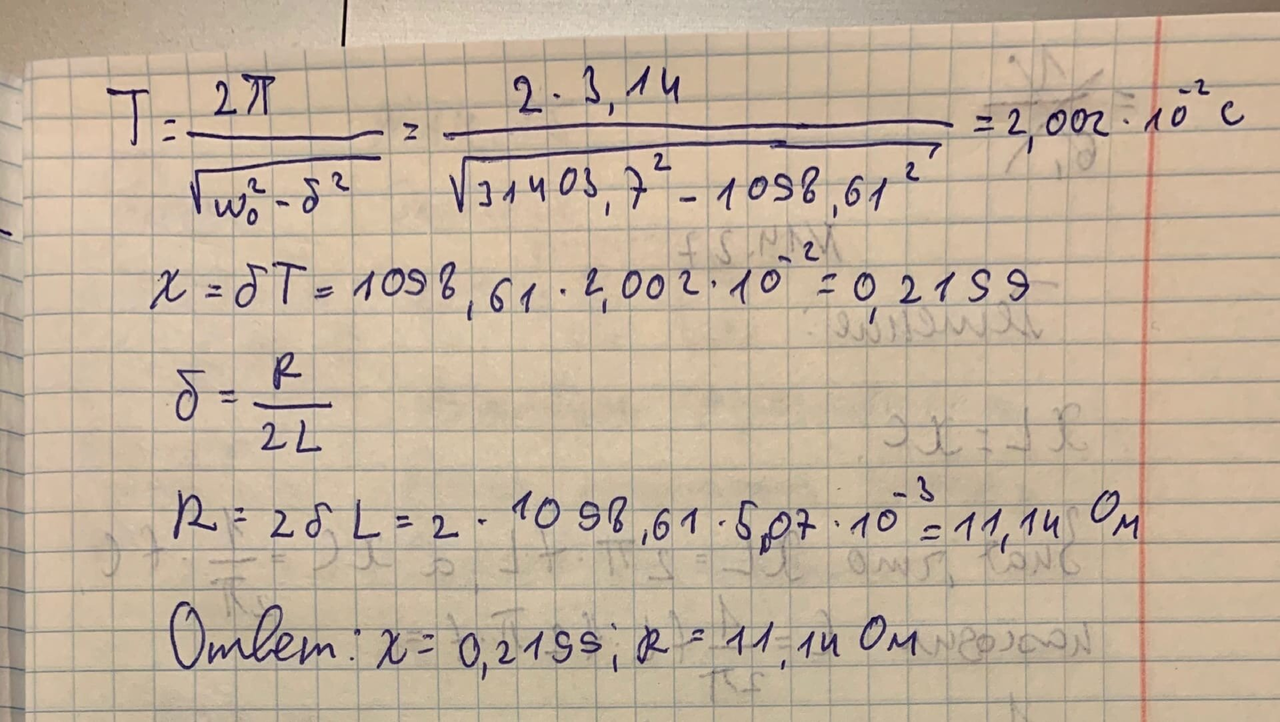 T = 2π / √(ω₀² - δ²) = 2 · 3,14 / √(31403,7² - 1098,61²) = 2,002 · 10⁻² с
x = δT = 1098,61 · 2,002 · 10⁻² = 0,2199
δ = R / 2L
R = 2δL = 2 · 1098,61 · 5,07 · 10⁻³ = 11,14 Ом
Ответ: x = 0,2199; R = 11,14 Ом